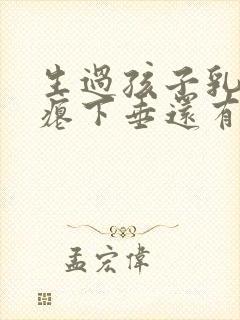 生過孩子乳
癟下垂還有
孟宏偉